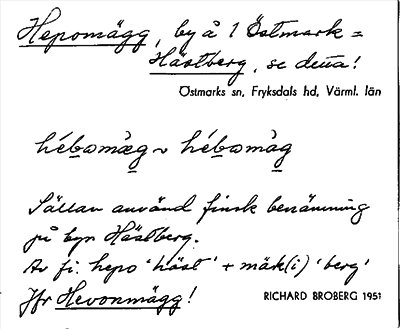 Hepomägg, by å 1 Östmark =
Hästberg, se detta!
Östmarks sn, Fryksdals hd, Värml. län
hébomæ̀g ~ hébomàg
Sällan använd finsk benämning
på byn Hästberg.
Av fi. hepo 'häst' + mäk(i) 'berg'
Jfr Hevonmägg!
RICHARD BROBERG 1951